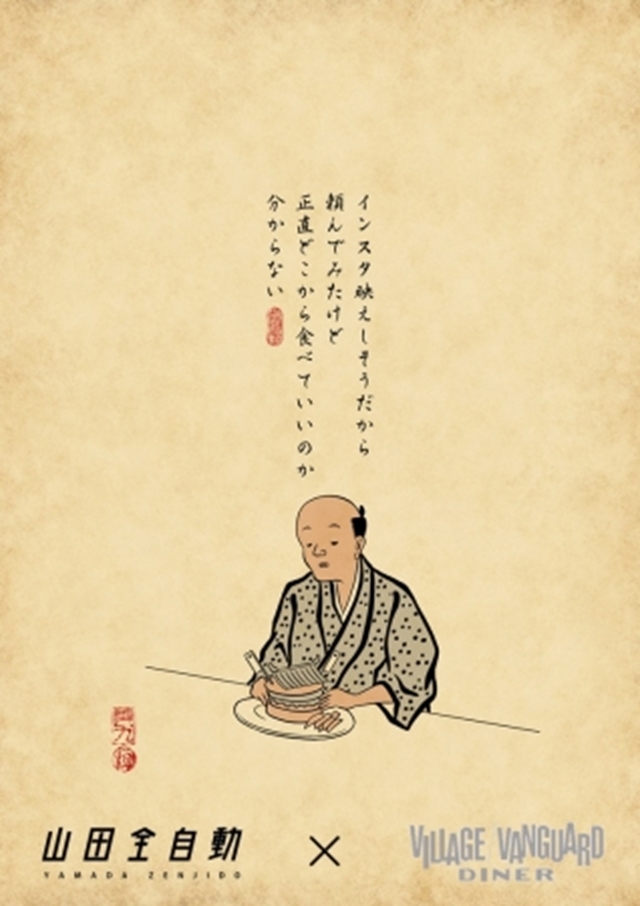 インスタ映えしそうだから
頼んでみたけど
正直どこから食べていいのか
分からない
山田全自動
YAMADA ZENJIDO
×
VILLAGE VANGUARD
DINER